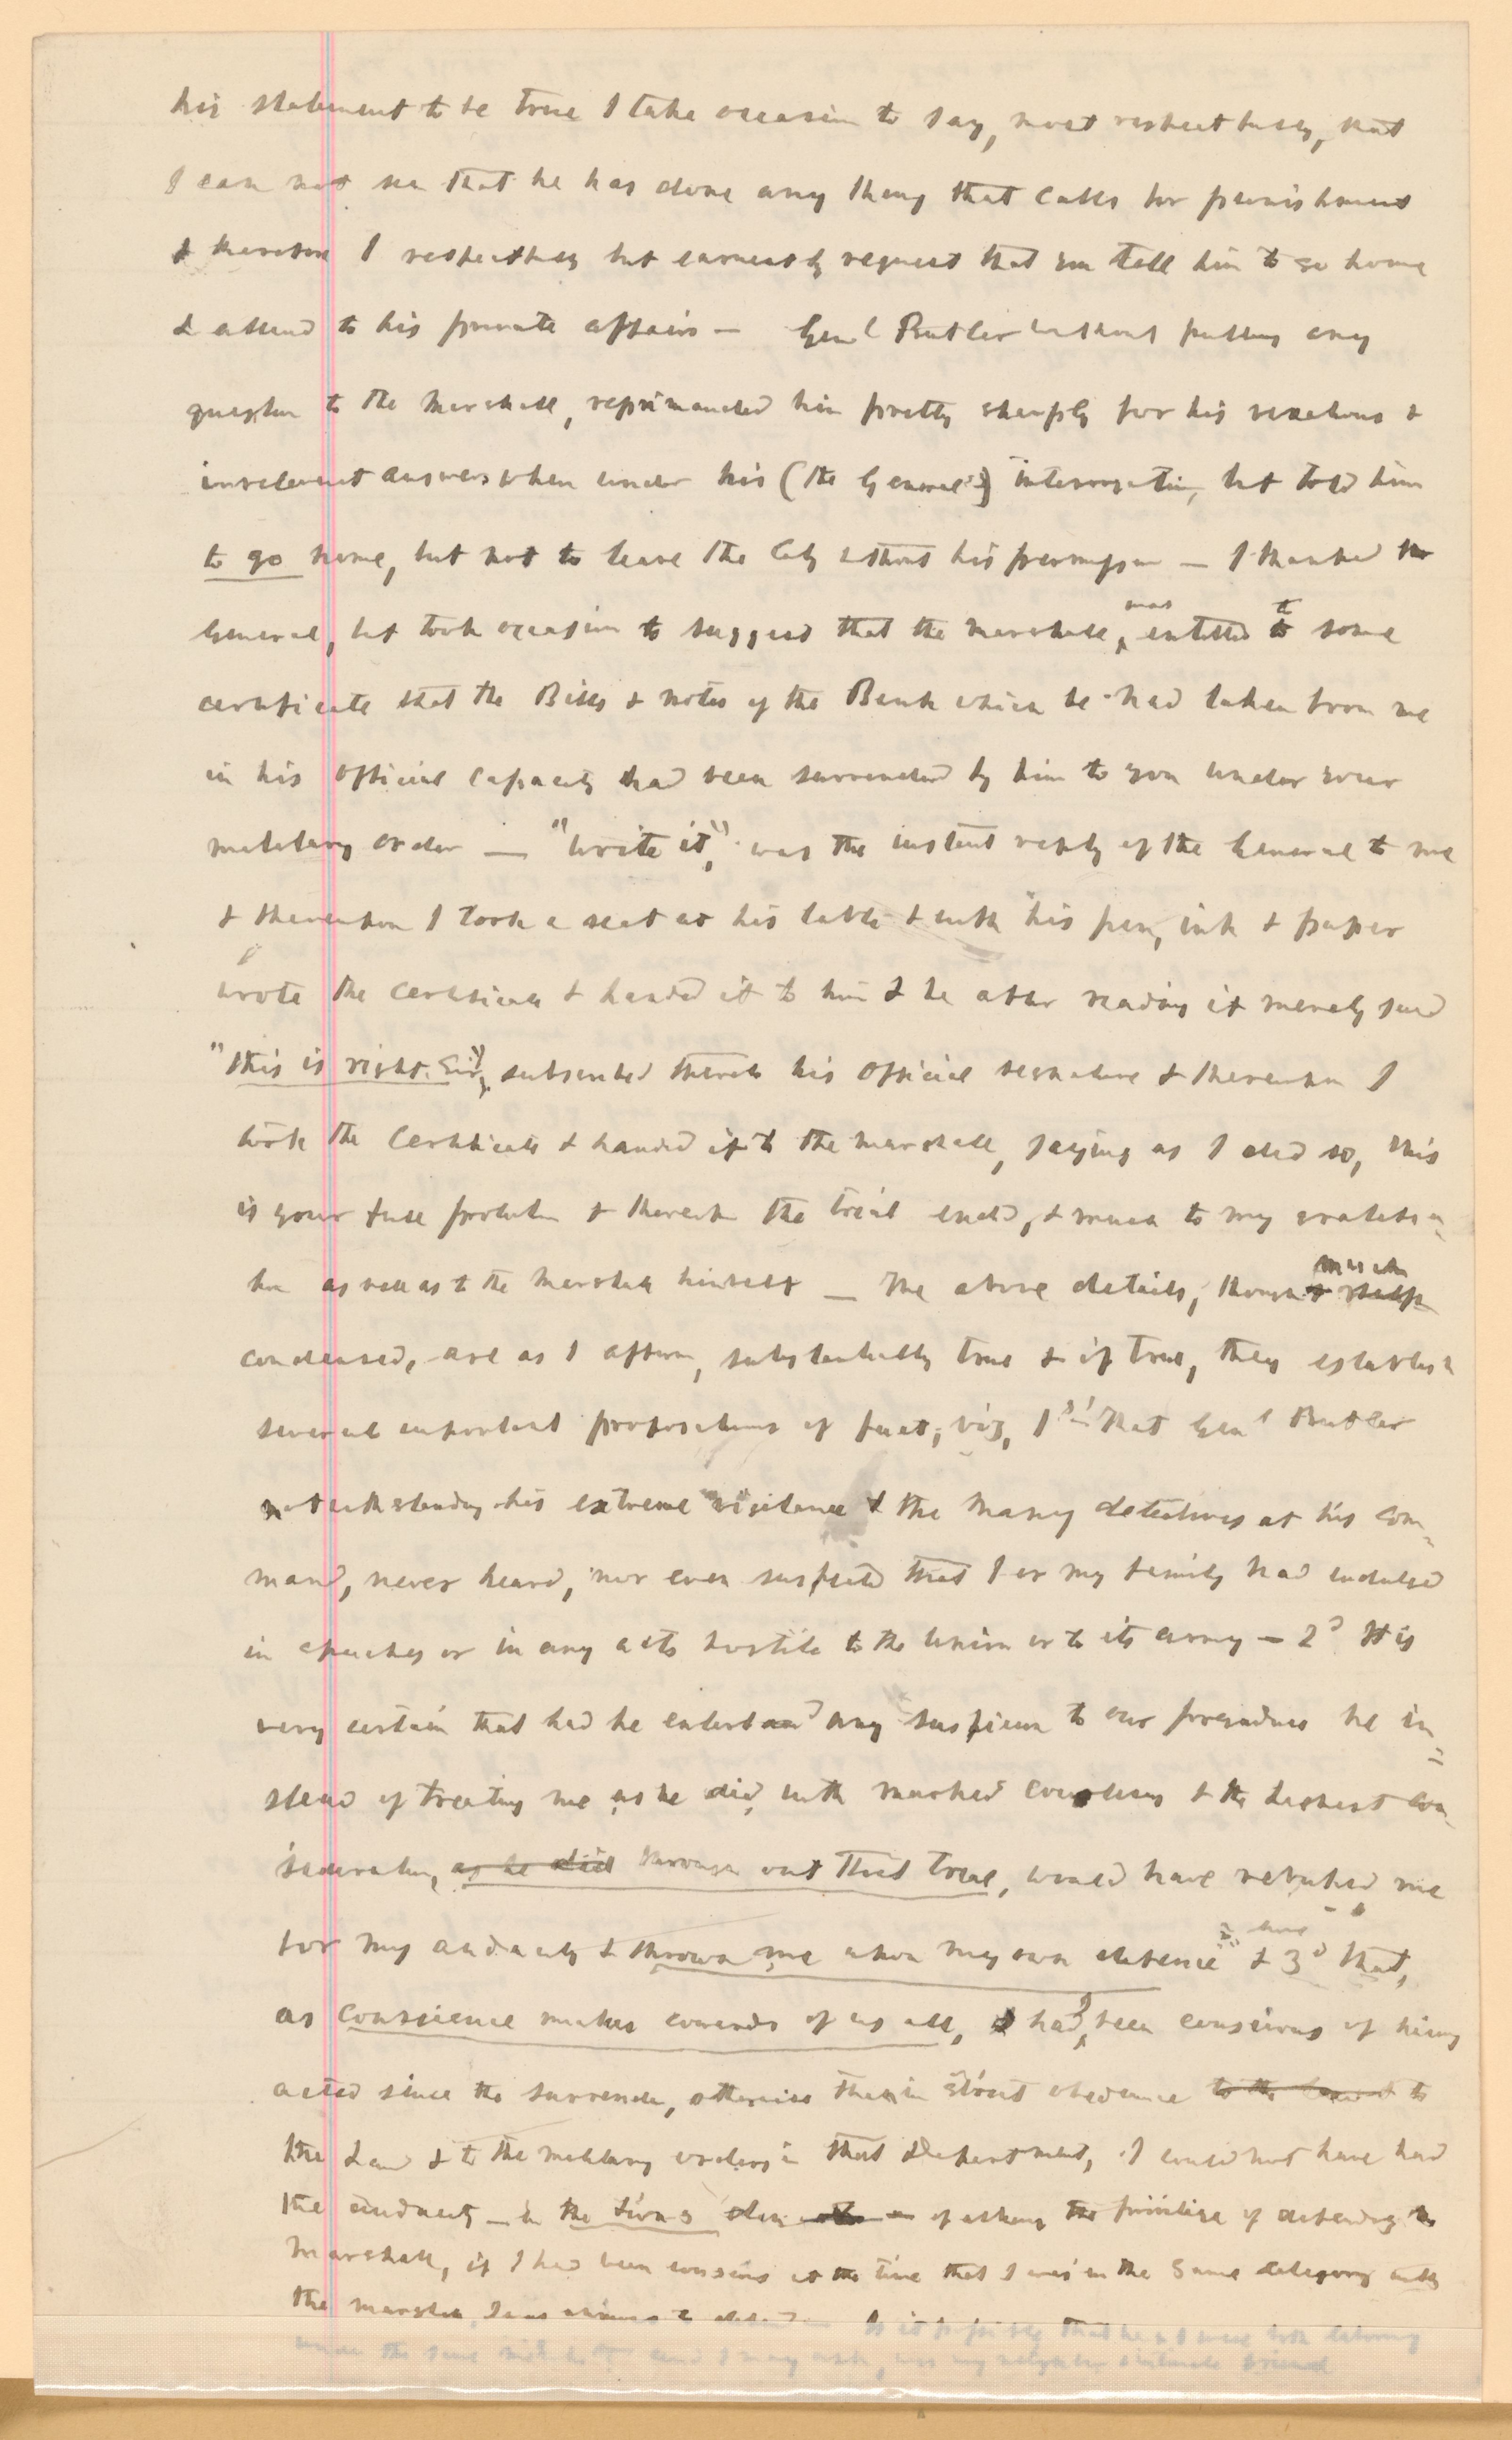 his statement to be true I take occasion to say, most respectfully, that
I can not see that he has done any thing that calls for punishment
& therefore I respectfully but earnestly request that you tell him to go home
& attend to his private affairs — Genl Butler without putting any
question to the Marshall, reprimanded him pretty sharply for his vexatious &
irrelevant answers when under his (the General's) interrogation, but told him
to go home, but not to leave the City without his permission — I thanked the
General, but took occasion to suggest that the Marshall, was entitled to some
certificate that the Bills & notes of the Bank which he had taken from me
in his official capacity had been surrendered by him to you under your
military order — "write it", was the instant reply of the General to me
& thereupon I took a seat at his table & with his pen, ink & paper
wrote the certificate & handed it to him & he after reading it merely said
"this is right Sir", subscribed thereto his official signature & thereupon I
took the certificate & handed it to the Marshall, saying as I did so, this
is your full protection & thereupon the trial ended, & much to my gratifica-
tion as well as to the Marshall himself — The above details, though much
condensed, are as I affirm, substantially true & if true, they establish
several important propositions of fact, viz, 1st That Genl Butler
notwithstanding his extreme vigilance & the many detectives at his com-
mand, never heard, nor even suspected that I or my family had indulged
in speeches or in any acts hostile to the Union or to its army — 2d It is
very certain that had he entertained any suspicion to our prejudice he in-
stead of treating me as he did, with marked courtesy & the highest con-
sideration, as he did through out that trial, would have rebuked me
for my audacity & thrown me upon my own defence & 3d that,
as conscience makes cowards of us all, had I been conscious of having
acted since the surrender, otherwise than in strict obedience to the to
the Law & to the military orders in that Department, I could not have had
the audacity — in the Lion's den — of asking the privilege of defending the
Marshall, if I had been conscious at the time that I was in the same category with
the Marshall Is it possible that he & I were both laboring
under the same and I may ask, was my neighbor & intimate friend